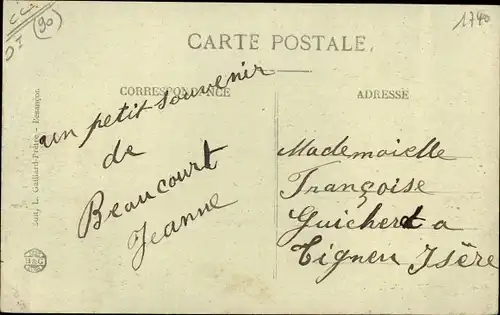 (90)
1740
CARTE POSTALE
CORRESPONDANCE
ADRESSE
un petit souvenir
de
Beaucourt
Jeanne
Mademoielle
Françoise
Guichert a
Tigneu Isère
Edit. L. Gaillard-Prêtre - Besançon